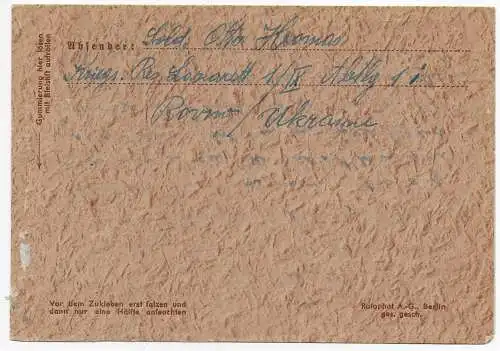 Gummierung hier lösen
mit Bleistift aufrollen
Absender: Sold. Otto
Kriegs. Res. Lazarett 1/IX Abtlg 1
Rowno / Ukraine
Vor dem Zukleben erst falzen und
dann nur eine Hälfte anfeuchten
Rotophot A.-G., Berlin
ges. gesch.